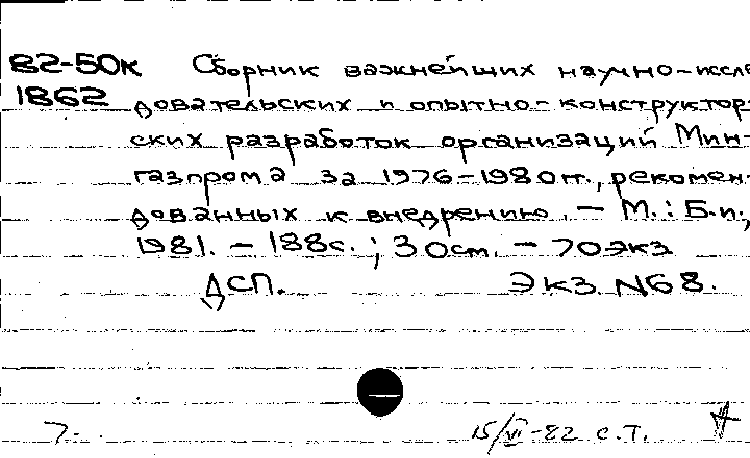 82-50к Сборник важнейших научно-иссле
1862 довательских и опытно-конструктор-
ских разработок организаций Мин-
газпрома за 1976-1980 гг., рекомен-
дованных к внедрению. - М.: Б.и.,
1981. - 188с.; 30см. - 70экз
ДСП. Экз. N68.
7-
15/VI-82 С.Т.